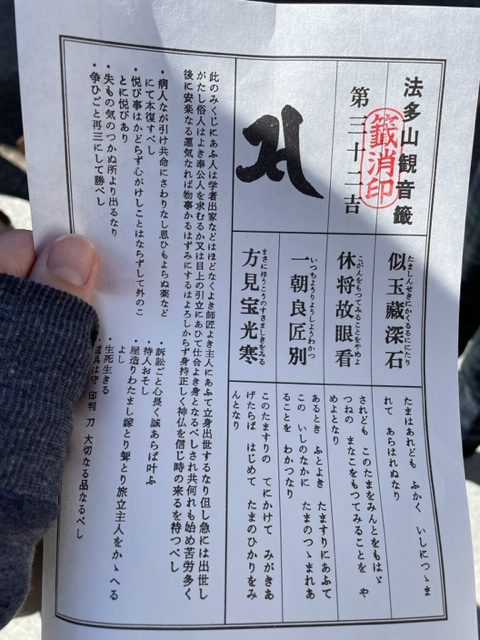 法多山観音籤
第三十二吉
籤消印
似玉藏深石
たましんせきにかくるるににたり
たまはあれども ふかく いしにつゝま
れて あらはれぬなり
休将故眼看
こがんをもつてみることをやめよ
されども このたまをみんとをもはゞ
つねの まなこをもつてみることを や
めよとなり
一朝良匠別
いつちようりようしようわかつ
あるとき ふとよき たますりにあふて
この いしのなかに たまのつゝまれあ
ることを わかつなり
方見宝光寒
まさにほうこうのすさましきをみる
このたますりの てにかけて みがきあ
げたらば はじめて たまのひかりをみ
んとなり
此のみくじにあふ人は学者出家などはほどなくよき師匠よき主人にあふて立身出世するなり但し急には出世し
がたし俗人はよき奉公人を求むるか又は目上の引立にあひて仕合よき身となるべしされ共何れも始め苦労多く
後に安楽なる運気なれば物事かるはずみにするはよろしからず身持正しく神仏を信じ時の来るを待つべし
・病人なが引け共命にさわりなし思ひもよらぬ薬など
にて本復すべし
・悦び事はかどらず心がけしことはならずして外のこ
とに悦びあり
・失もの気のつかぬ所より出るなり
・争ひごと再三にして勝べし
・訴訟ごと心長く誠あらば叶ふ
・待人おそし
・屋造りわたまし嫁とり聟とり旅立主人をかゝへる
よし
・生死生きる
守 印判 刀 大切なる品なるべし